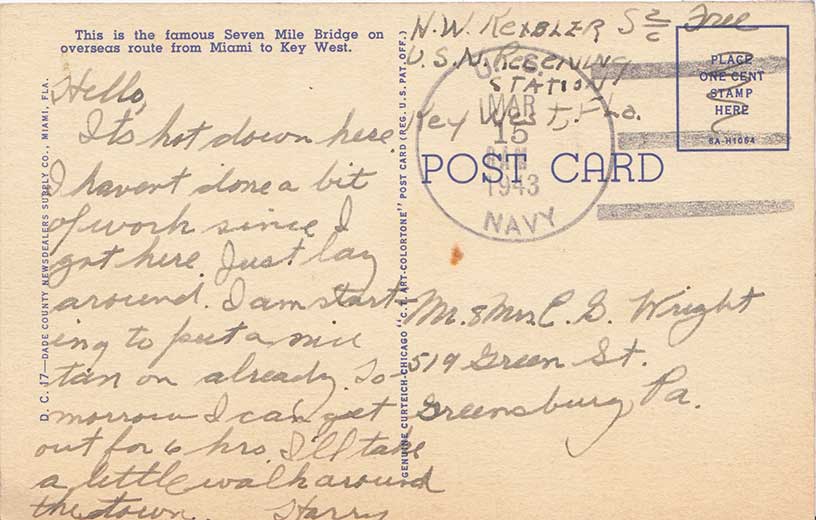 This is the famous Seven Mile Bridge on
overseas route from Miami to Key West.
Hello,
It's hot down here.
I havent done a bit
of work since I
got here. Just lay
around. I am start-
ing to put a nice
tan on already. To-
morrow I can get
out for 6 hrs. I'll take
a little walk around
the town. Harry
D. C. 17—DADE COUNTY NEWSDEALERS SUPPLY CO., MIAMI, FLA.
GENUINE CURTEICH-CHICAGO "C. T. ART-COLORTONE" POST CARD (REG. U. S. PAT. OFF.)
N. W. S 2/c Free
U. S. N. 
STATION
Key West, Fla.
U. S.
MAR
15
1943
NAVY
PLACE
ONE CENT
STAMP
HERE
6A-H1064
POST CARD
Mr. & Mrs. C. G. Wright
519 Green St.
Greensburg, Pa.